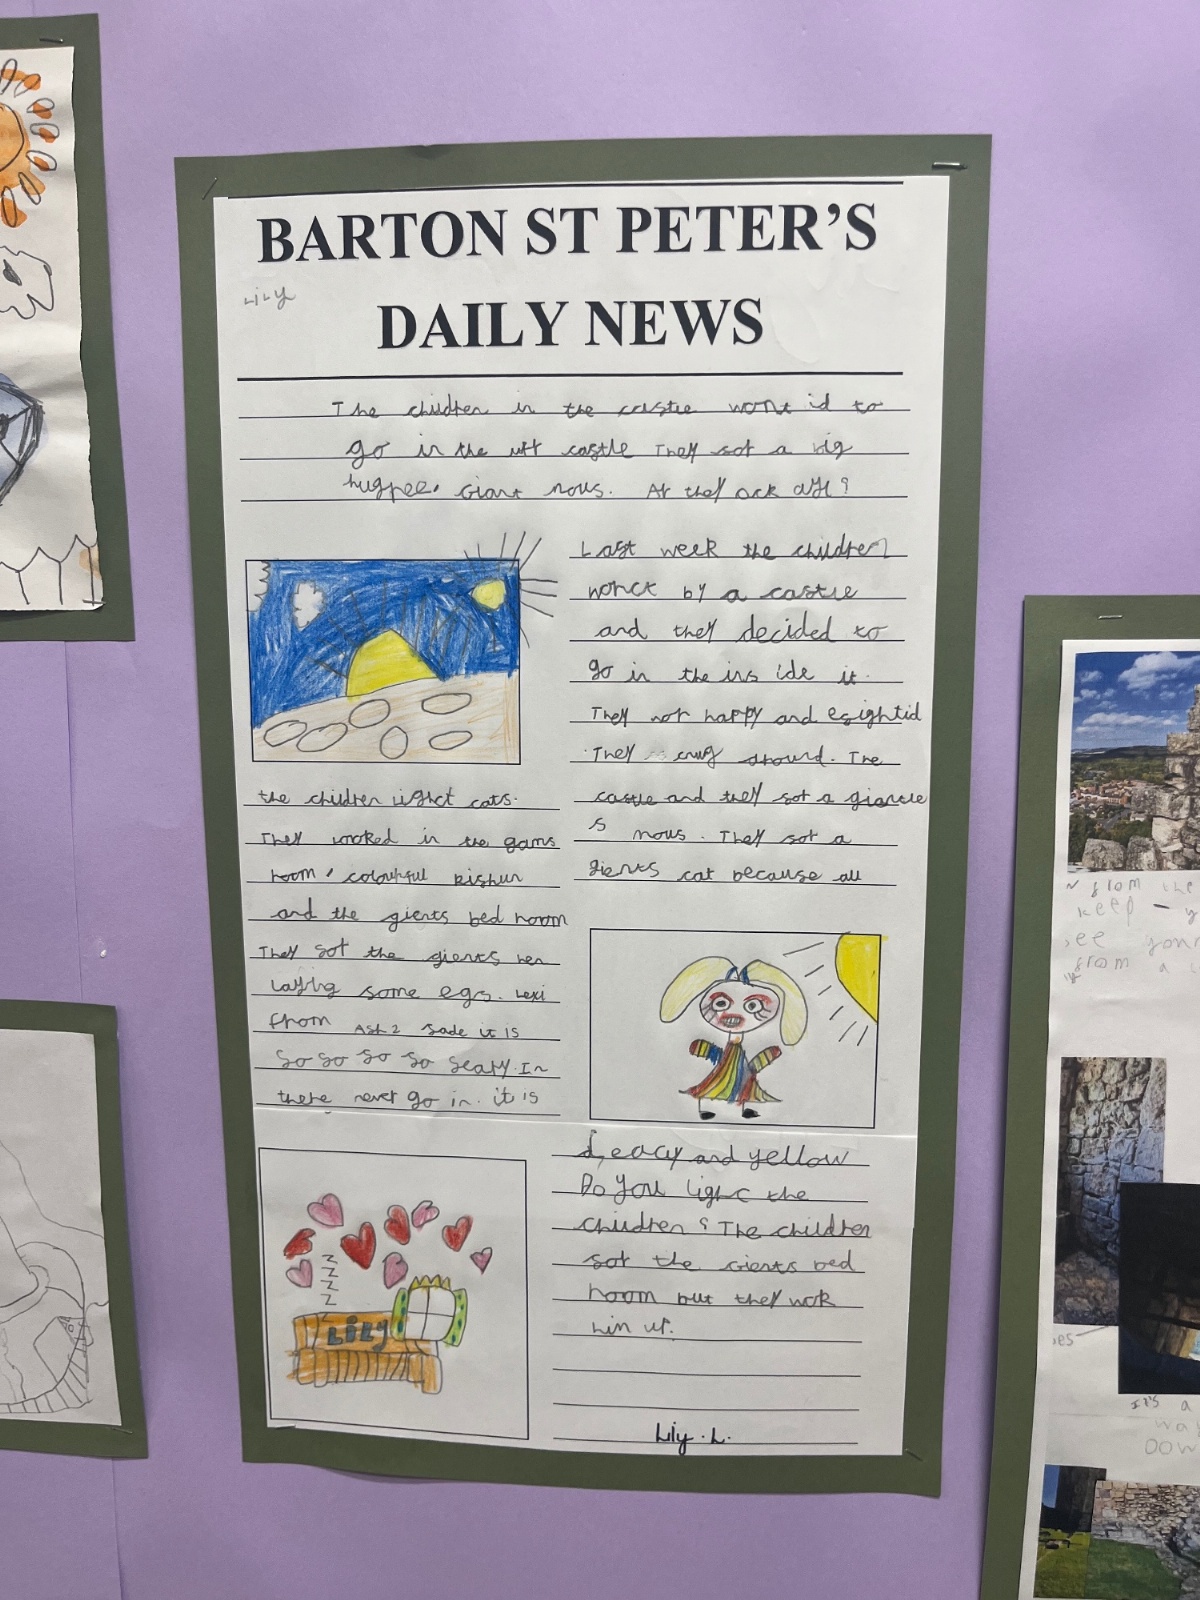 BARTON ST PETER'S
LiLy
DAILY NEWS
The children in the castle wont id to
go in the uft castle They sot a big
hugpee. Giant nous. Ar they ock aye?
Last week the children
worck by a castle
and they decided to
go in the ins ide it.
They wor happy and esightid
They around. The
castle and they sot a giantle
s nous. They sot a
gients cat because all
the children light cats.
They wroked in the gams
room, colourful kishun
and the gients bed room
They sot the gients hen
laying some egs. Lexi
from ASh 2 sade it is
So so so so scary. In
there never go in. it is
Leacy and yellow
Do you light the
children? The children
sot the Gients bed
room but they wok
him up.
z
z
z
z
z
LiLy
Lily. L.
from the
keep - y
see your
from a
it's a
wa
DOW